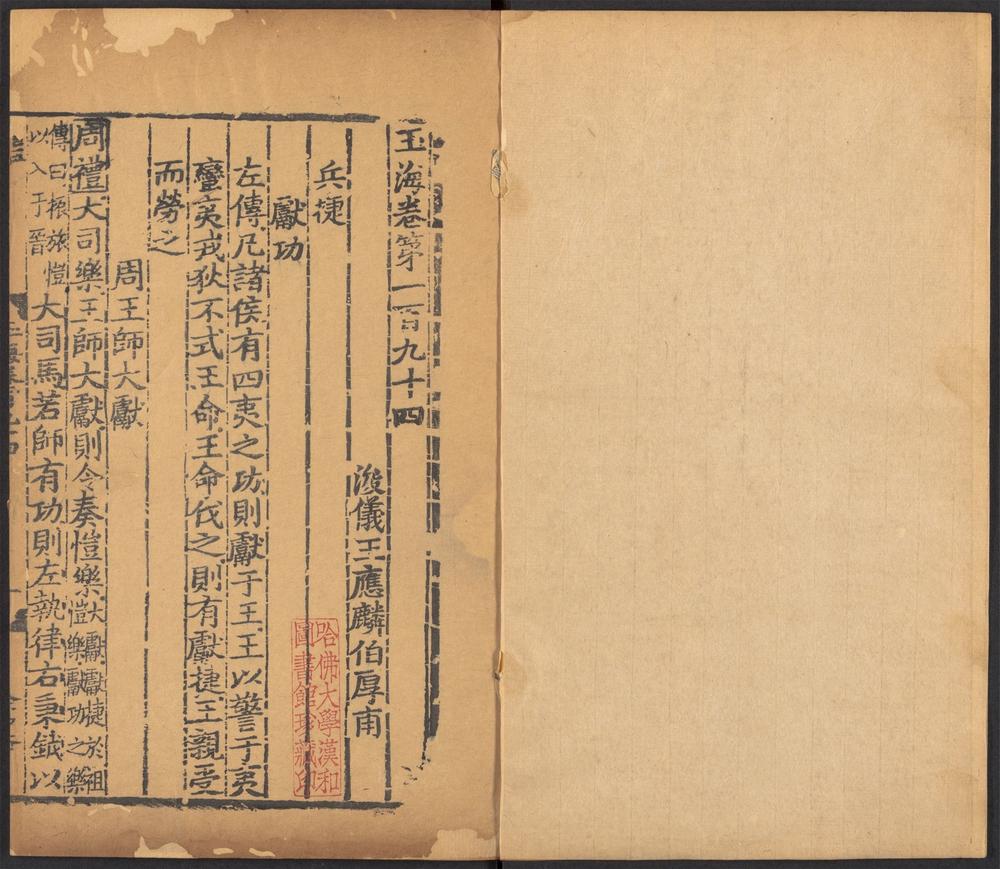 玉海卷第一百九十四
浚儀王應麟伯厚甫
兵捷
獻功
左傳凡諸侯有四夷之功則獻于王王以警于夷
蠻夷戎狄不式王命王命伐之則有獻捷王親受
而勞之
周王師大獻
周禮大司樂王師大獻則令奏愷樂大獻獻捷於祖
愷樂獻功之樂
傳曰振旅愷
以入于晉大司馬若師有功則左執律右秉鉞以
哈佛大學漢和
圖書館珍藏印